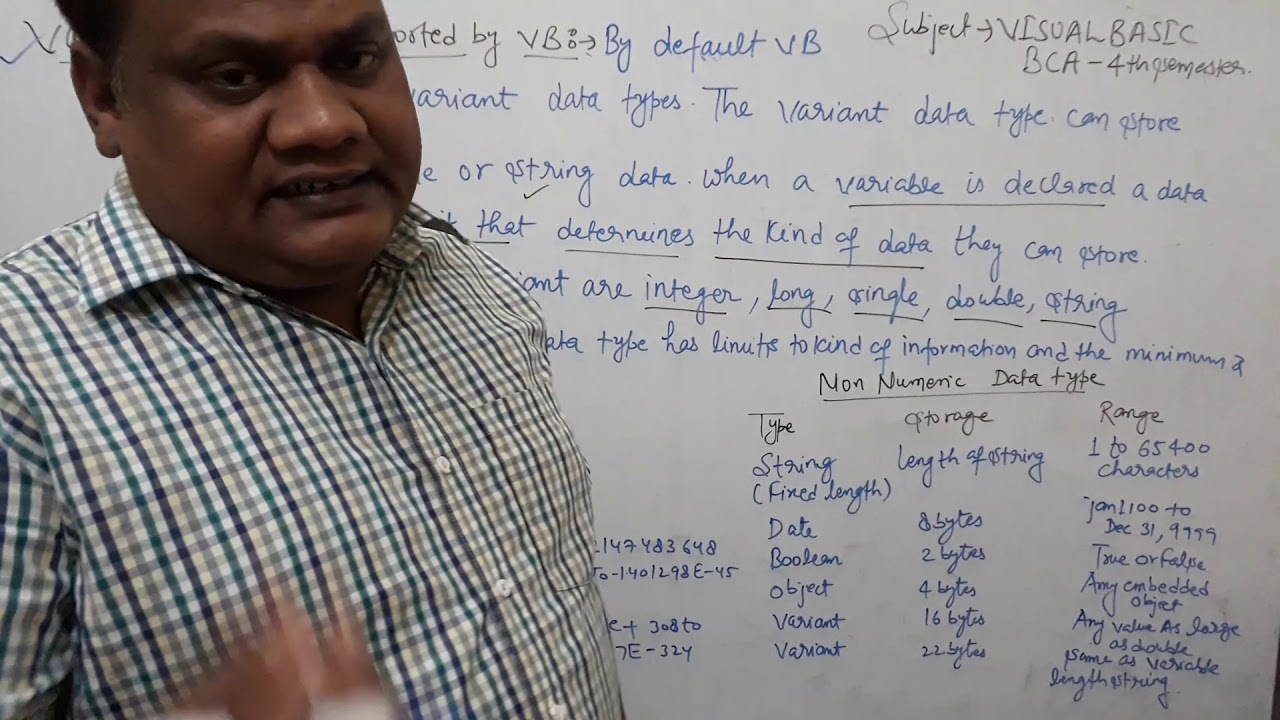 orted by VB :→ By default VB
Subject → VISUAL BASIC
BCA - 4th semester.
variant data types. The variant data type can store
e or string data. When a variable is declared a data
it that determines the kind of data they can store.
iant are integer, long, single, double, string
ata type has limits to kind of information and the minimum &
Non Numeric Data type
Type Storage Range
String (Fixed length) length of string 1 to 65400 characters
Date 8 bytes jan 1 100 to Dec 31, 9999
147483648 Boolean 2 bytes True or false
To -1.401298E-45 object 4 bytes Any embedded object
e+ 308 to Variant 16 bytes Any value As large as double
7E-324 Variant 22 bytes same as variable length string.